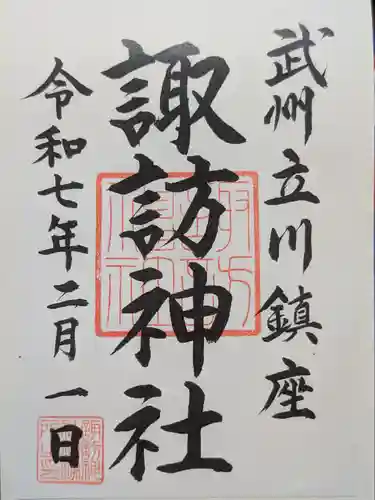 武州立川鎮座
諏訪神社
令和七年二月一日
諏訪神社